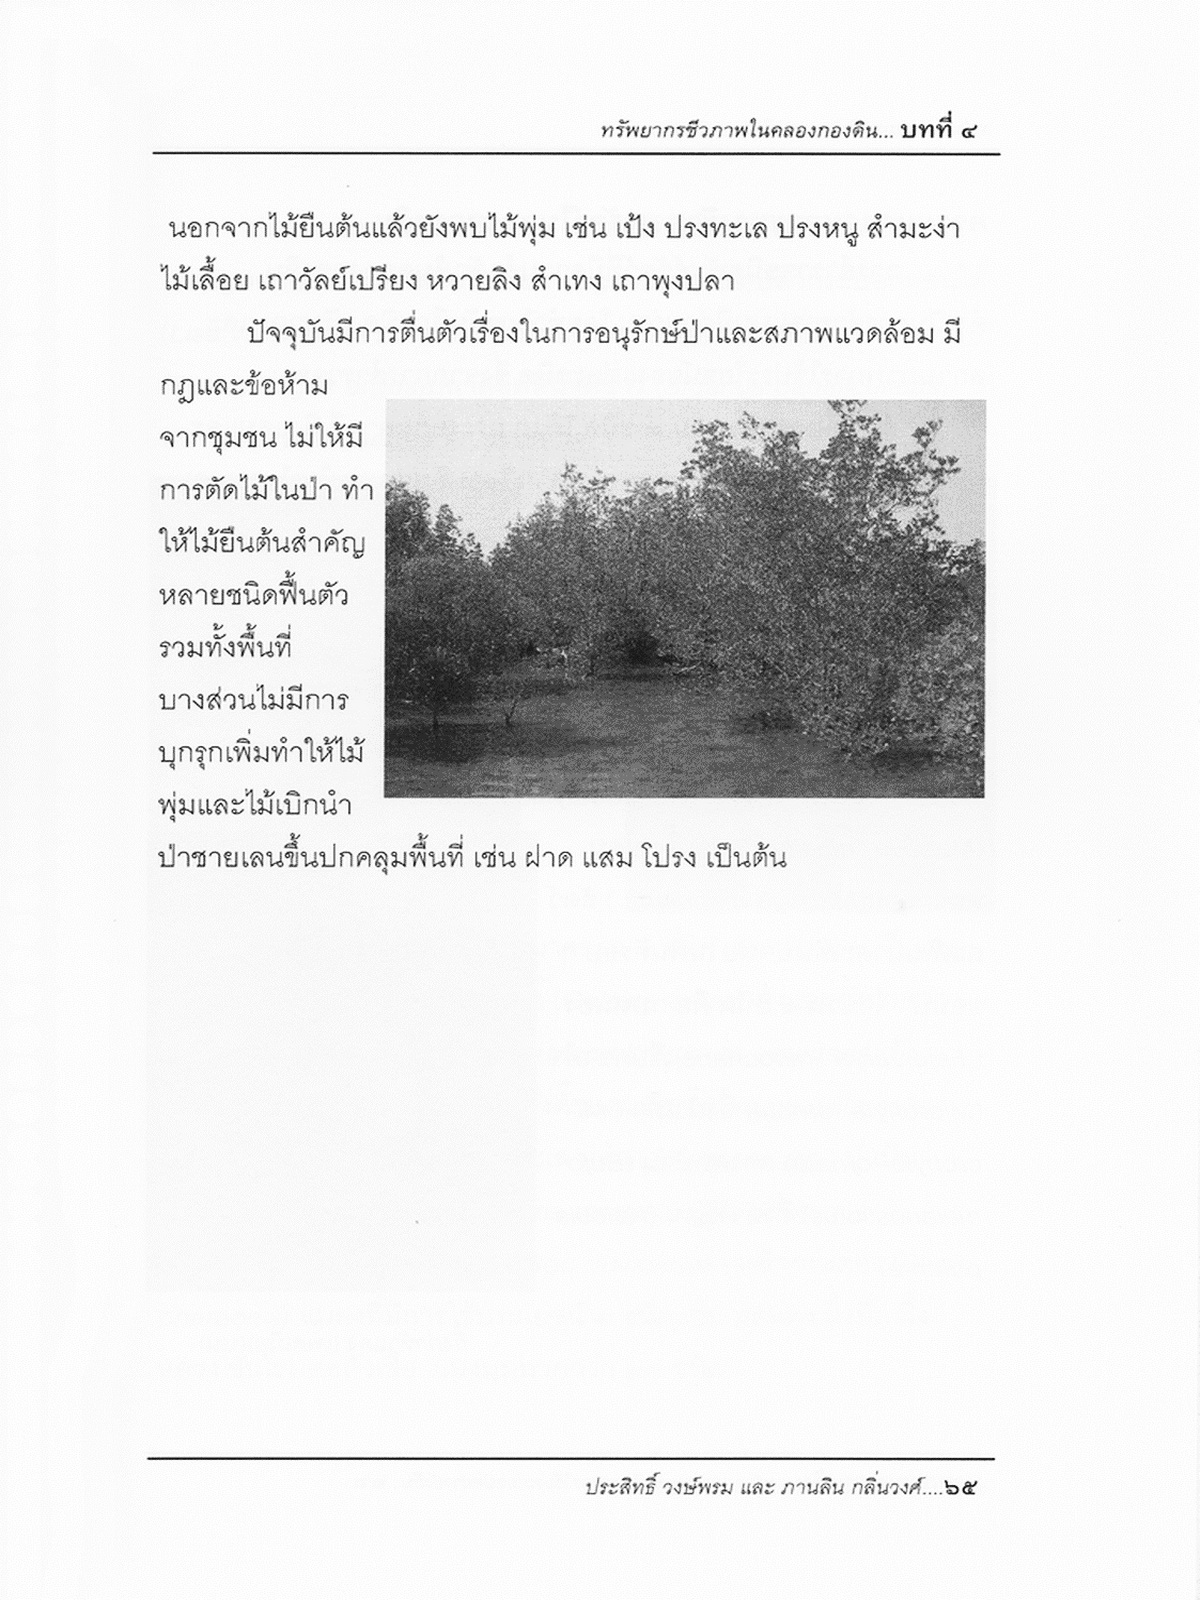 ทรัพยากรชีวภาพในคลองกองดิน... บทที่ ๔
นอกจากไม้ยืนต้นแล้วยังพบไม้พุ่ม เช่น เป้ง ปรงทะเล ปรงหนู สำมะง่า
ไม้เลื้อย เถาวัลย์เปรียง หวายลิง สำเทง เถาพุงปลา
ปัจจุบันมีการตื่นตัวเรื่องในการอนุรักษ์ป่าและสภาพแวดล้อม มี
กฎและข้อห้าม
จากชุมชน ไม่ให้มี
การตัดไม้ในป่า ทำ
ให้ไม้ยืนต้นสำคัญ
หลายชนิดฟื้นตัว
รวมทั้งพื้นที่
บางส่วนไม่มีการ
บุกรุกเพิ่มทำให้ไม้
พุ่มและไม้เบิกนำ
ป่าชายเลนขึ้นปกคลุมพื้นที่ เช่น ฝาด แสม โปรง เป็นต้น
ประสิทธิ์ วงษ์พรม และ ภานลิน กลิ่นวงศ์....๖๕